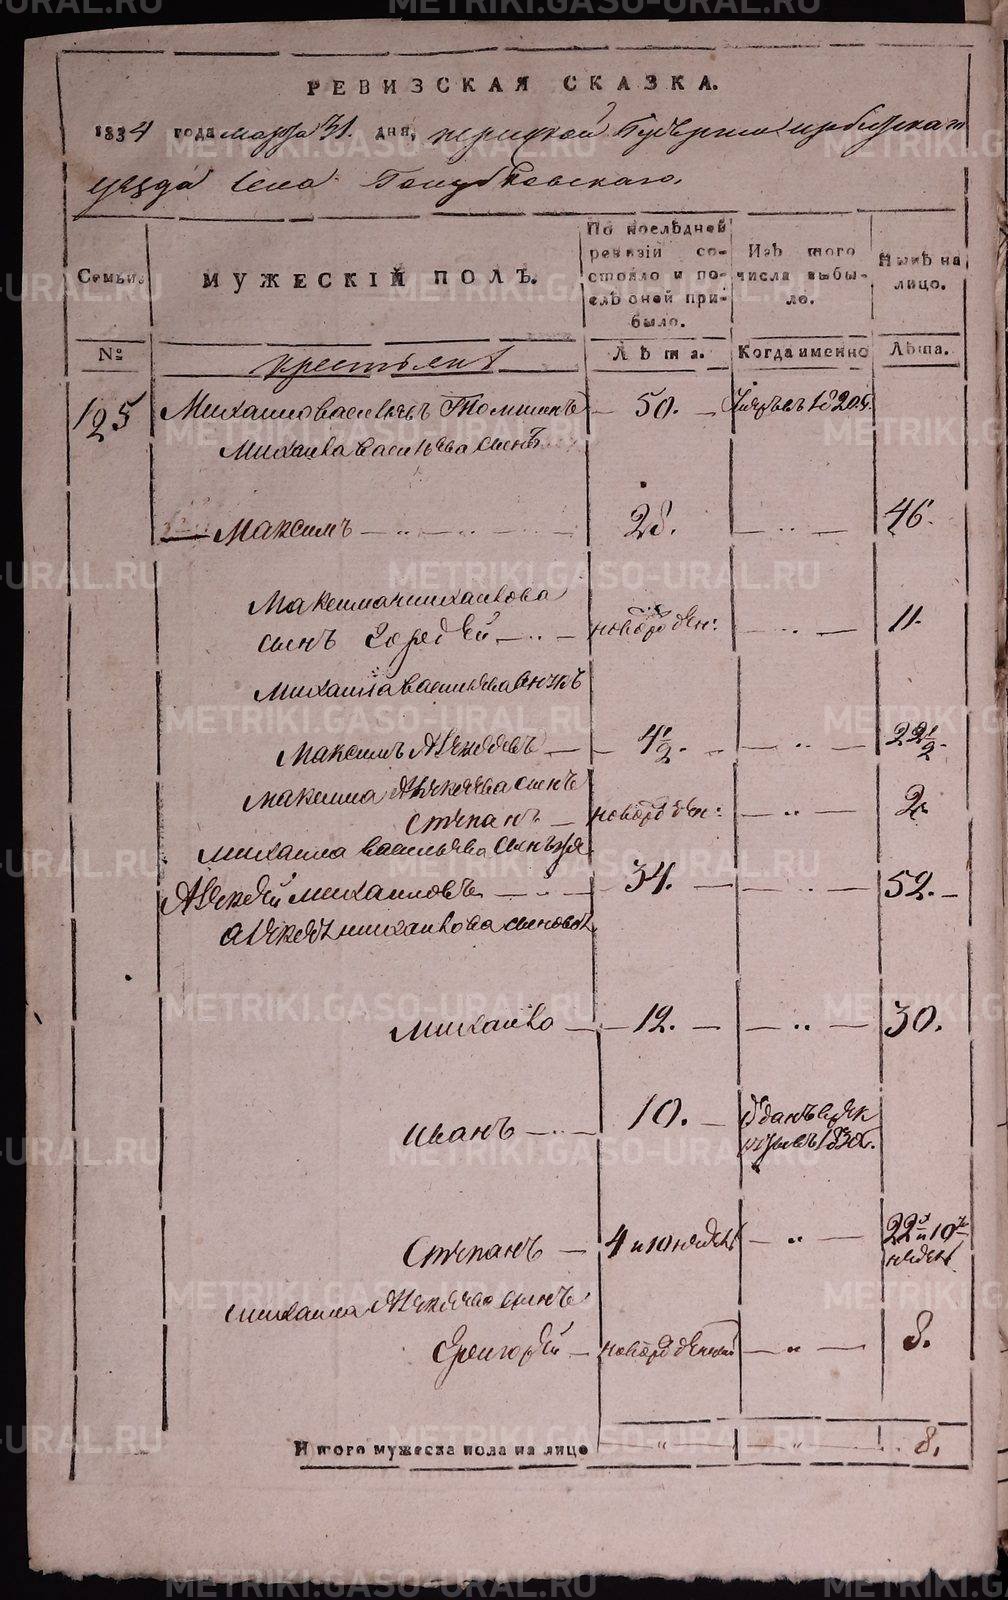 РЕВИЗСКАЯ СКАЗКА.
1834 года марта 31. дня, пермской Губернии ирбитскаго
уезда села Голубковскаго.
Семьи
МУЖЕСКІЙ ПОЛЪ.
По послѣдней ревизіи состояло и послѣ оной прибыло.
Изъ того числа выбыло.
Нынѣ на лицо.
№
крестьянѣ
Лѣта.
Когда именно
Лѣта.
125 Михаило васильевъ 50. умре въ 1820г.
Михаила васильева сынъ
Максимъ 28. 46.
Максима михаилова
сынъ Гордѣй новорожден: 11.
Михаила васильева внукъ
Максимъ Алексѣевъ 4½. 22½
максима Алексеева сынъ
степанъ новорожден: 2
михаила васильева сынъ
Алексѣй михаиловъ 34. 52.
алексея михаилова сыновья
михаило 12. 30.
иванъ 10. отданъ в рек
руты въ 1830г.
степанъ 4 и 10 недель 22 и 10
недель
михаила Алексеева сынъ
Григорѣй новорожденный 8.
Итого мужеска пола на лице 8.
METRIKI.GASO-URAL.RU